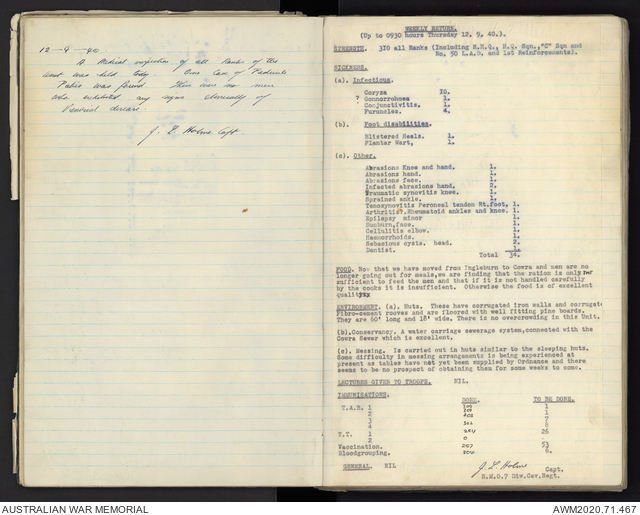 12-9-40
A Medical inspection of all Ranks of this
unit was held today. One Case of Pediculi
Pubis was found. There were no men
who exhibited any signs clinically of
Venereal disease.
J. L. Holme Capt
WEEKLY RETURN.
(Up to 0930 hours Thursday 12. 9. 40.).
STRENGTH. 310 all Ranks (Including R.H.Q., H.Q. Sqn.,"C" Sqn and
No. 50 L.A.D. and 1st Reinforcements).
SICKNESS.
(a). Infectious.
Coryza 10.
? Gonnorrohoea 1.
Conjunctivitis. 1.
Furuncles. 4.
(b). Foot disabilities.
Blistered Heals. 1.
Planter Wart, 1.
(c). Other.
Abrasions Knee and hand. 1.
Abrasions hand. 1.
Abrasions face. 1.
Infected abrasions hand.
Traumatic synovitis knee. 1.
Sprained ankle. 1.
Tenosynovitis Peroneal tendon Rt.foot. 1.
Arthritis?.Rheumatoid ankles and knee. 1.
Epilepsy minor 1.
Sunburn,face. 1.
Cellulitis elbow. 1.
Haemorrhoids. 1.
Sebasious cysts. head. 2.
Dentist. 1.
Total 34.
FOOD. Now that we have moved from Ingleburn to Cowra and men are no
longer going out for meals,we are finding that the ration is only just
sufficient to feed the men and that if it is not handled carefully
by the cooks it is insufficient. Otherwise the food is of excellent
quality
ENVIROMENT. (a). Huts. These have corrugated iron walls and corrugate
Fibro-cement rooves and are floored with well fitting pine boards.
They are 60' long and 18' wide. There is no overcrowding in this Unit.
(b).Conservancy. A water carriage sewerage system,connected with the
Cowra Sewer which is excellent.
(c). Messing. Is carried out in huts similar to the sleeping huts.
Some difficulty in messing arrangements is being experienced at
present as tables have not yet been supplied by Ordnance and there
seems to be no prospect of obtaining them for some weeks to come.
LECTURES GIVEN TO TROOPS. NIL.
IMMUNISATIONS. DONE. TO BE DONE.
T.A.B. 1 1
2 1
3 7
4 8
T.T. 1 26
2 0
Vaccination. 53
Bloodgrouping. 6.
GENERAL. NIL
J. L. Holme
Capt.
R.M.O.7 Div.Cav.Regt.
AUSTRALIAN WAR MEMORIAL
AWM2020.71.467